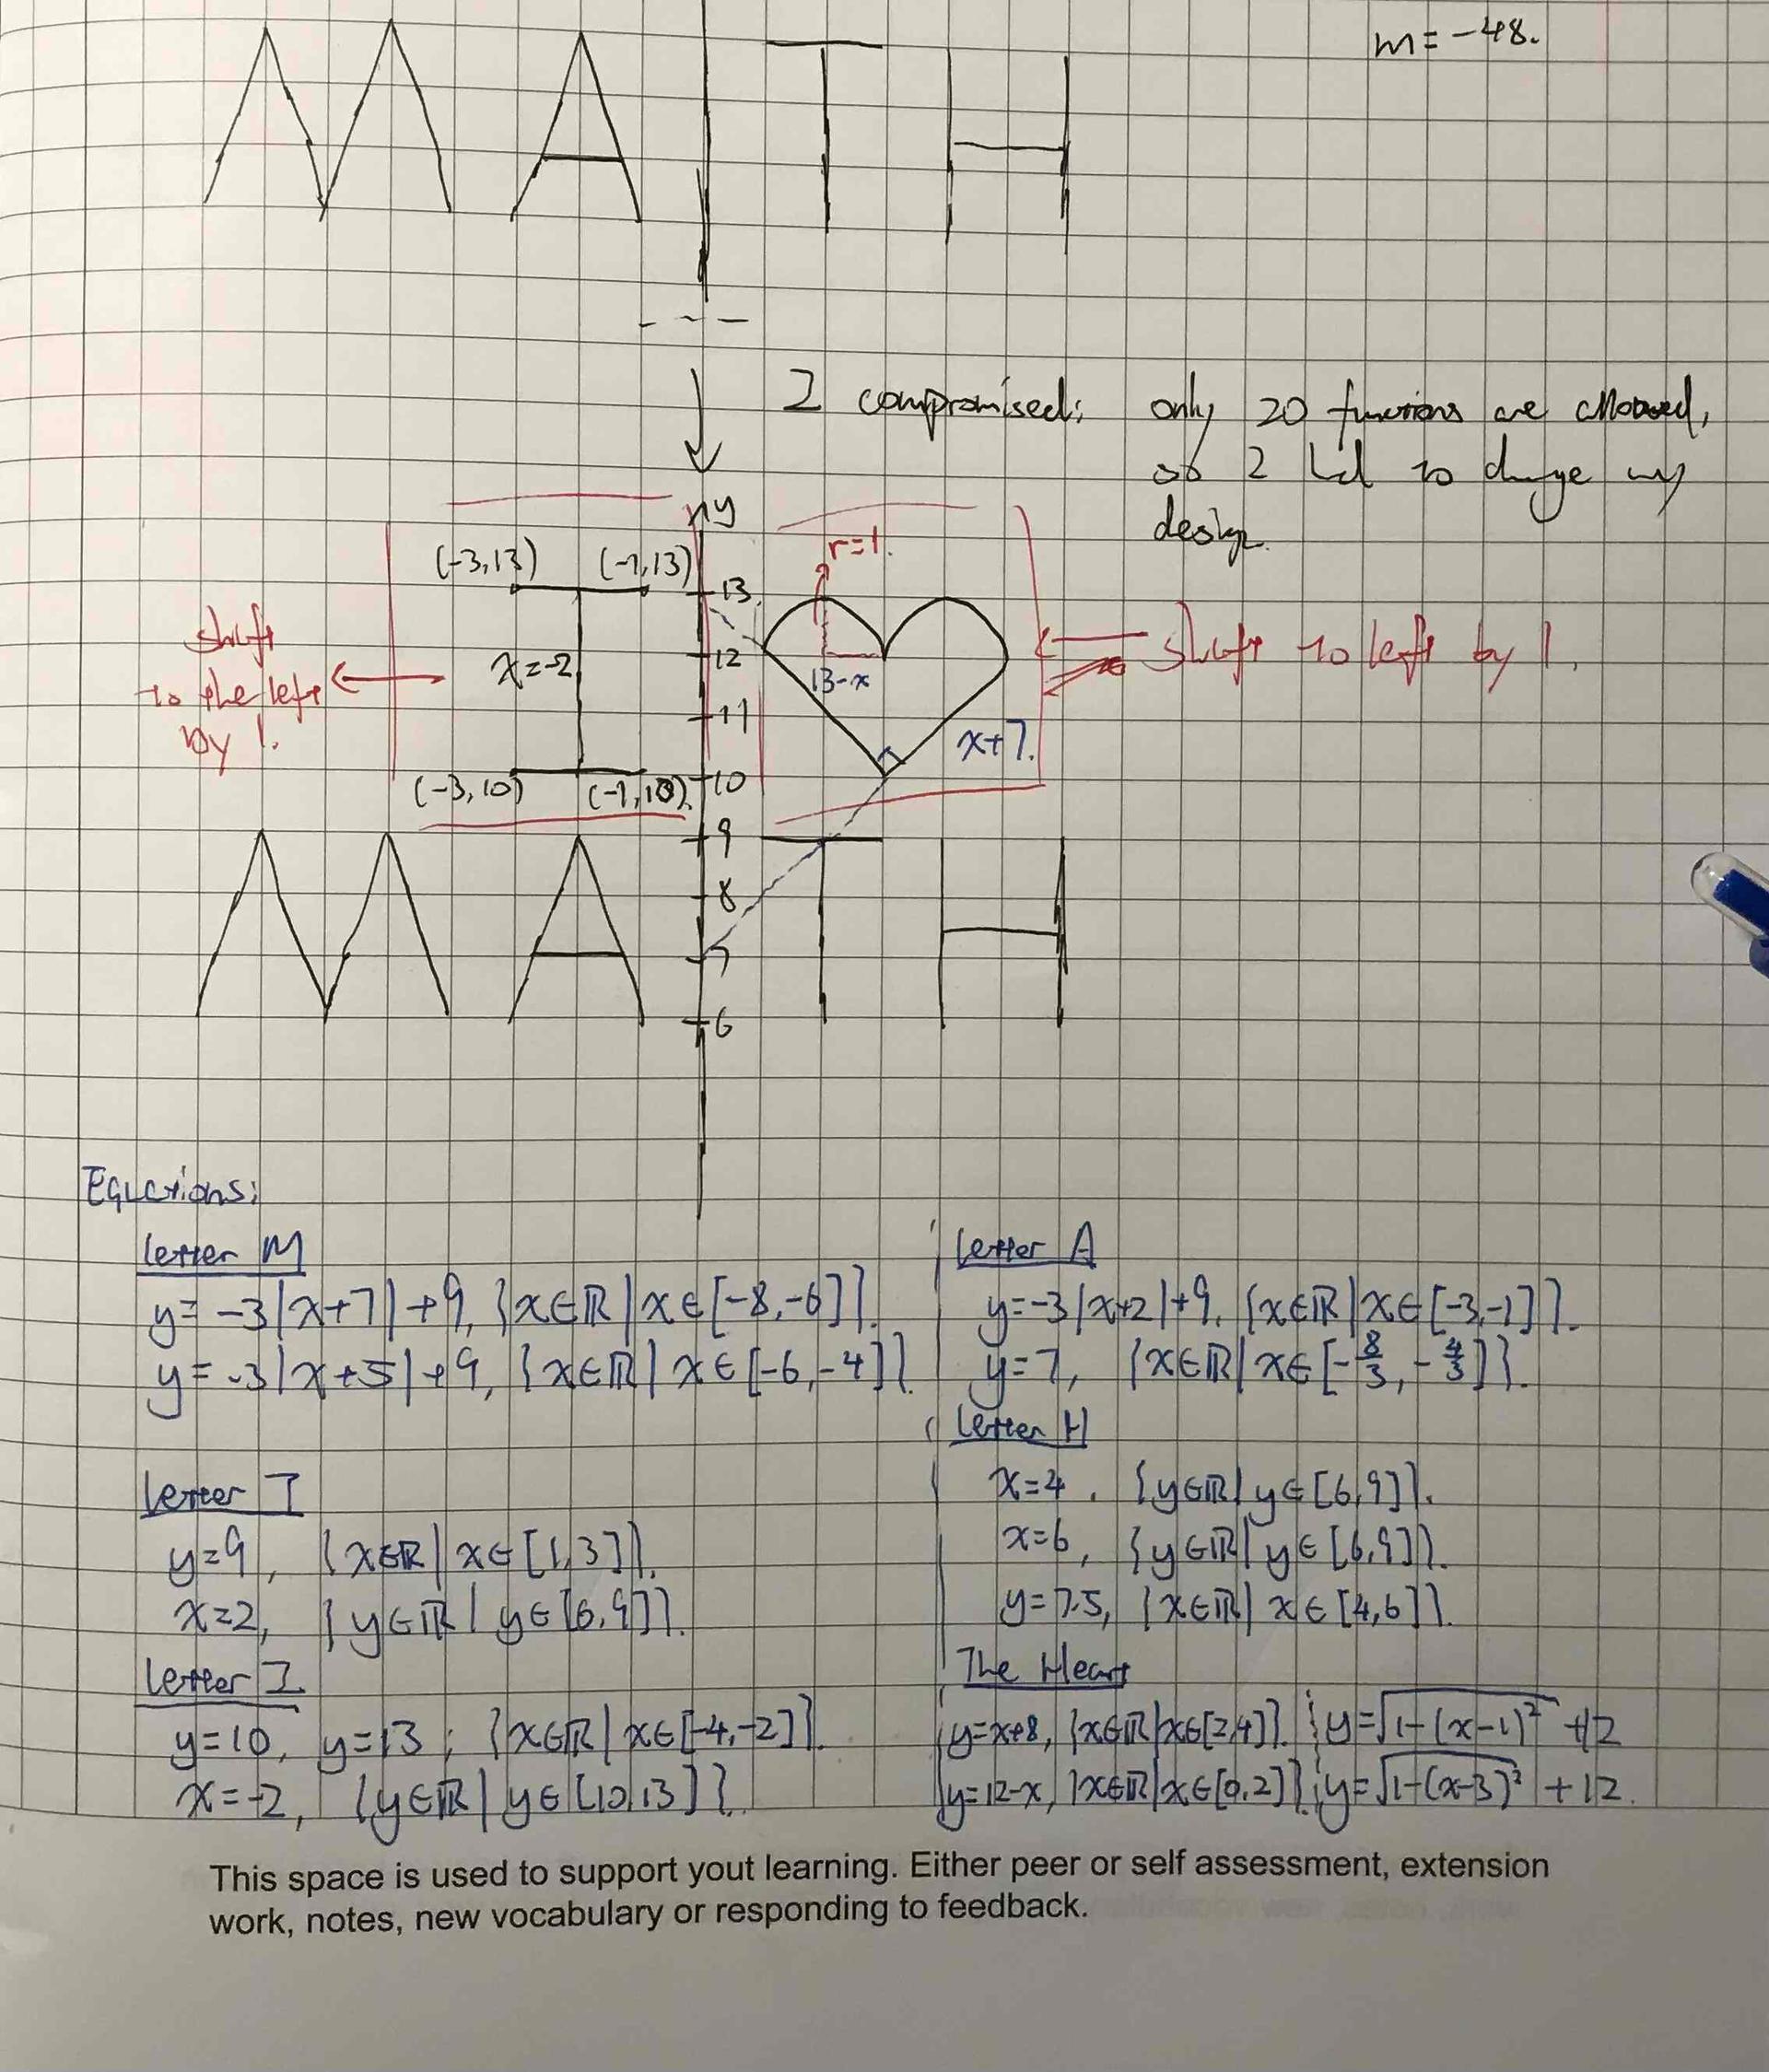 M A T H
m = -48.
I compromised: only 20 functions are allowed,
so I had to change my
design.
y
(-3,13) (-1,13)
13
r=1.
shift
to the left
by 1.
x=-2
12
13-x
shift to left by 1.
11
x+7.
(-3,10) (-1,10).
10
9
8
7
6
M A T H
Equations:
Letter M
y = -3|x+7|+9, {x∈ℝ|x∈[-8,-6]}.
y = -3|x+5|+9, {x∈ℝ|x∈[-6,-4]}.
Letter A
y=-3|x+2|+9, {x∈ℝ|x∈[-3,-1]}.
y=7, {x∈ℝ|x∈[-8/3, -4/3]}.
Letter T
y=9, {x∈ℝ|x∈[1,3]}.
x=2, {y∈ℝ|y∈[6,9]}.
Letter H
x=4, {y∈ℝ|y∈[6,9]}.
x=6, {y∈ℝ|y∈[6,9]}.
y=7.5, {x∈ℝ|x∈[4,6]}.
Letter I
y=10, y=13; {x∈ℝ|x∈[-4,-2]}.
x=-2, {y∈ℝ|y∈[10,13]}.
The Heart
y=x+8, {x∈ℝ|x∈[2,4]}. y=√(1-(x-1)²) +12
y=12-x, {x∈ℝ|x∈[0,2]}. y=√(1-(x-3)²) +12.
This space is used to support yout learning. Either peer or self assessment, extension
work, notes, new vocabulary or responding to feedback.